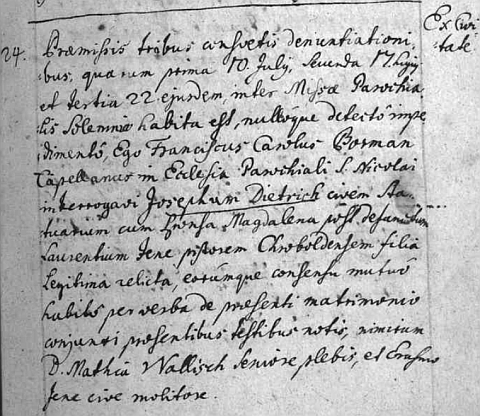 Ex Civi
tate
24. Præmissis tribus consvetis denuntiationi-
bus, quarum prima 10 July, secunda 17 hujus
et tertia 22 ejusdem, inter Missæ Parochia
lis Solemnia habita est, nulloque detectô impe
dimentô, Ego Franciscus Carolus Borman
Capellanus in Ecclesia Parochiali S. Nicolai
interrogavi Josephum Dietrich civem
tuarium cum Magdalena post defunctum
Laurentium Jene pistorem Chroboldensem filia
Legitima relicta, eorumque consensu mutuô
habitô per verba de præsenti matrimonio
conjunxi præsentibus testibus notis, nimirum
D. Mathia Wallisch Seniore plebis, et Erasmo
Jene cive molitore.